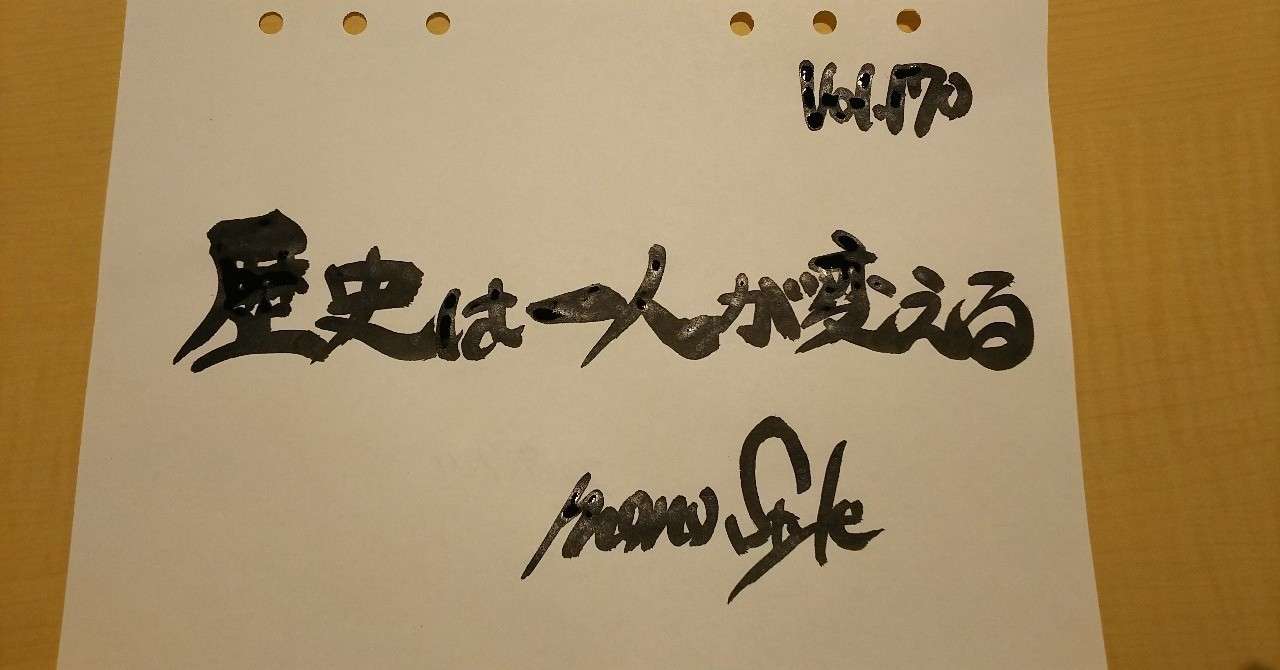 Vol.170
歴史は一人が変える
mono Style